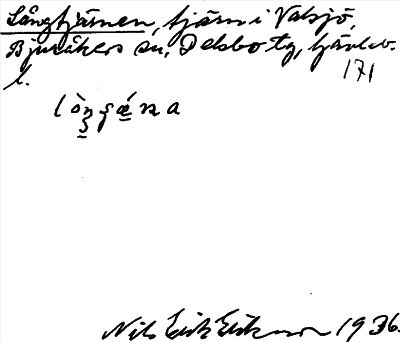 Långtjärnen, tjärn i Valsjö,
Bjuråkers sn, Delsbo tg, Gävleb.
l. 171
Nils Erik Eriksson 1936.